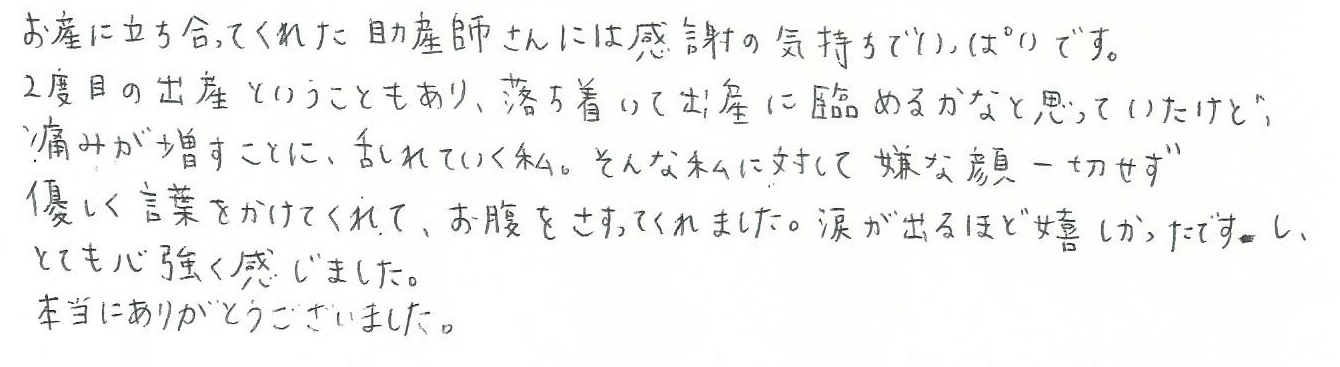 お産に立ち合ってくれた助産師さんには感謝の気持ちでいっぱいです。
2度目の出産ということもあり、落ち着いて出産に臨めるかなと思っていたけど、
痛みが増すことに、乱れていく私。そんな私に対して嫌な顔一切せず
優しく言葉をかけてくれて、お腹をさすってくれました。涙が出るほど嬉しかったです し、
とても心強く感じました。
本当にありがとうございました。